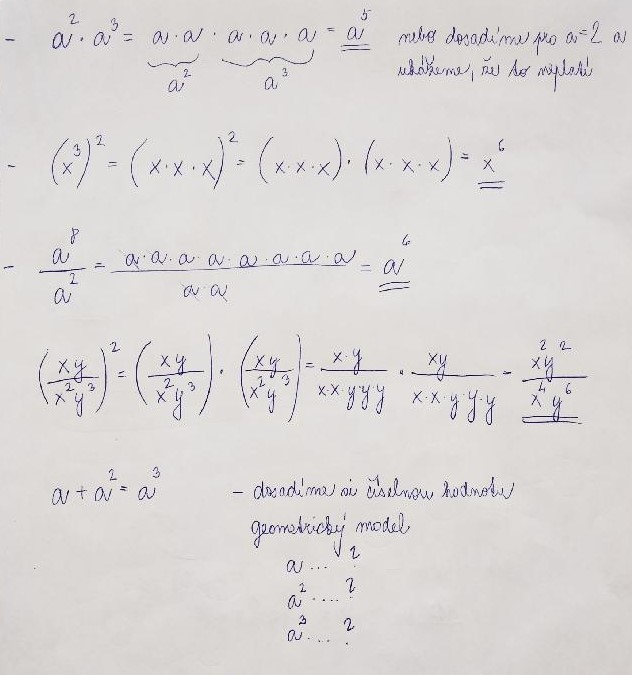 - a² · a³ = a · a · a · a · a = a⁵ nebo dosadíme pro a=2 a
a² a³ ukážeme, že to neplatí
- (x³)² = (x · x · x)² = (x · x · x) · (x · x · x) = x⁶
- a⁸/a² = a·a·a·a·a·a·a·a/a·a = a⁶
(xy/x²y³)² = (xy/x²y³) · (xy/x²y³) = x·y/x·x·y·y·y · xy/x·x·y·y·y = x²y²/x⁴y⁶
a + a² = a³ - dosadíme si číselnou hodnotu
geometrický model
a .... ?
a² .... ?
a³ .... ?